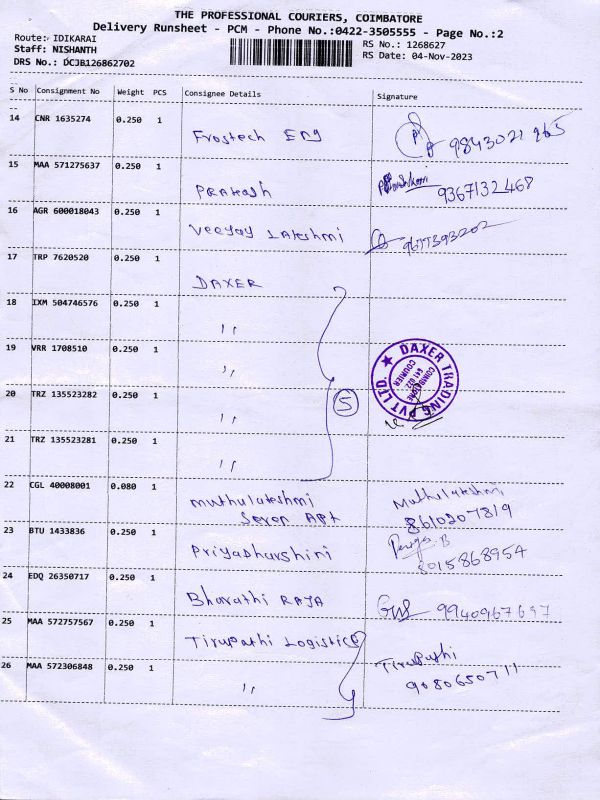 THE PROFESSIONAL COURIERS, COIMBATORE
Delivery Runsheet - PCM - Phone No.:0422-3505555 - Page No.:2
Route: IDIKARAI
RS No.: 1268627
Staff: NISHANTH
RS Date: 04-Nov-2023
DRS No.: DCJB126862702
S No Consignment No Weight PCS Consignee Details Signature
14 CNR 1635274 0.250 1
Frostech Eng 9843021265
15 MAA 571275637 0.250 1
Prakash 9367132468
16 AGR 600018043 0.250 1
Veejay Lakshmi
17 TRP 7620520 0.250 1
DAXER
18 IXM 504746576 0.250 1
''
19 VRR 1708510 0.250 1
''
DAXER TRADING PVT LTD
COIMBATORE
641 022
COURIER
20 TRZ 135523282 0.250 1
''
5
21 TRZ 135523281 0.250 1
''
22 CGL 40008001 0.080 1
muthulakshmi Muthulakshmi
Seven Apt 8610207819
23 BTU 1433836 0.250 1
Priyadharshini 8015868954
24 EDQ 26350717 0.250 1
Bharathi RAJA 9940967697
25 MAA 572757567 0.250 1
Tirupathi Logistics
26 MAA 572306848 0.250 1
'' Tirupathi
9080650711